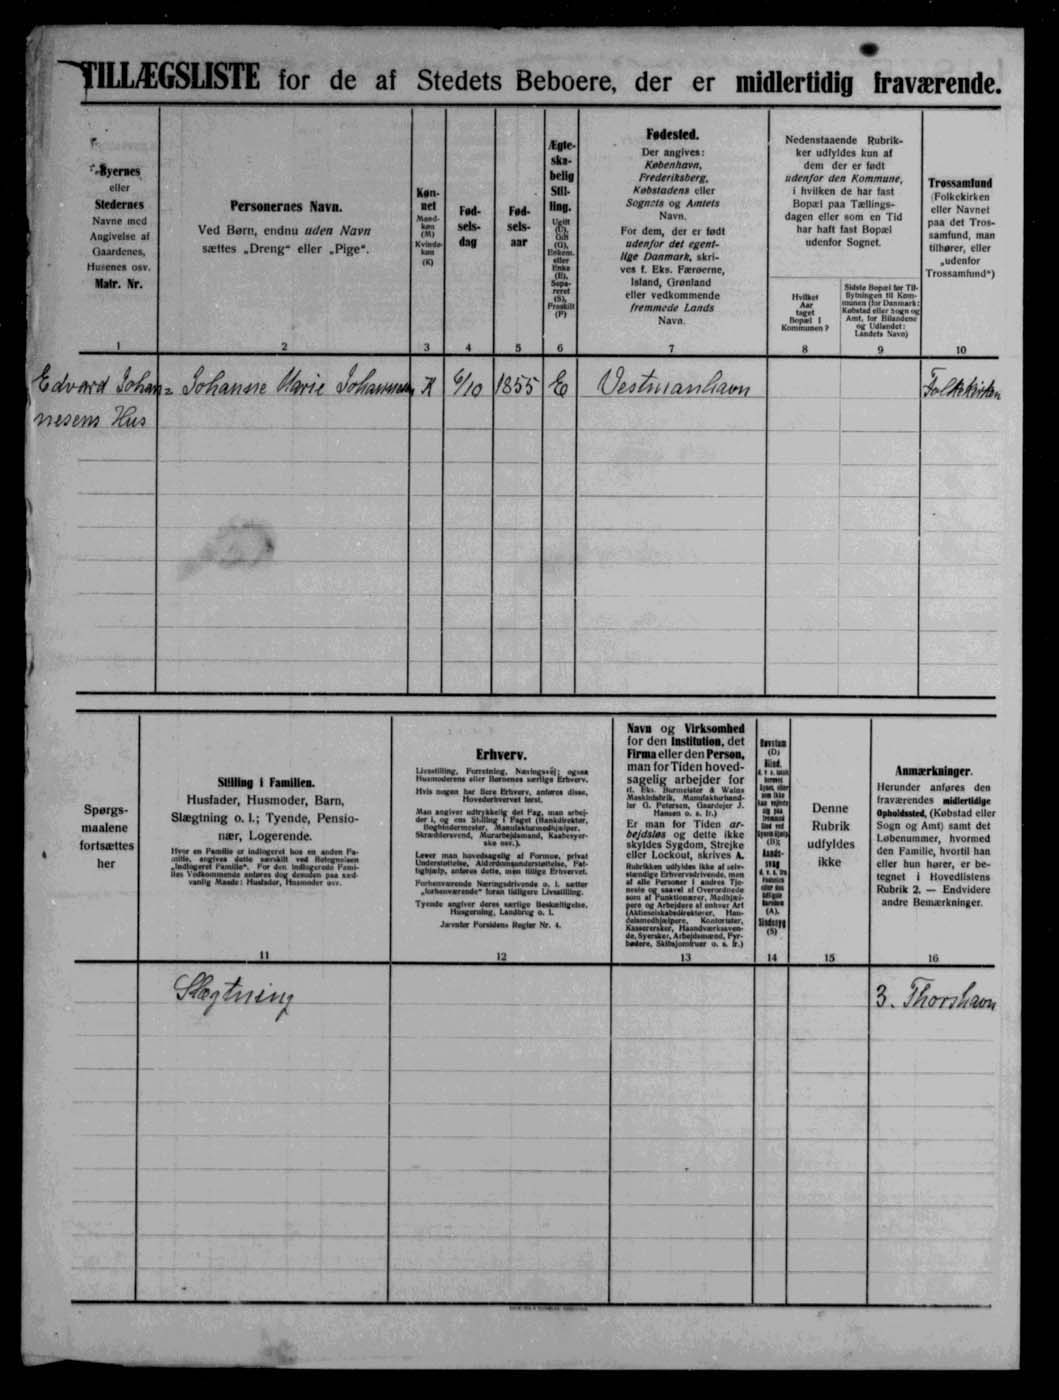 TILLÆGSLISTE for de af Stedets Beboere, der er midlertidig fraværende.
Byernes
eller
Stedernes
Navne med
Angivelse af
Gaardenes,
Husenes osv.
Matr. Nr.
1
Personernes Navn.
Ved Børn, endnu uden Navn
sættes „Dreng“ eller „Pige“.
2
Køn-
net
Mand-
køn
(M)
Kvinde-
køn
(K)
3
Fød-
sels-
dag
4
Fød-
sels-
aar
5
Ægte-
ska-
belig
Stil-
ling.
Ugift
(U),
Gift
(G),
Enkem.
eller
Enke
(E),
Sepa-
reret
(S),
Fraskilt
(F)
6
Fødested.
Der angives:
København,
Frederiksberg,
Købstadens eller
Sognets og Amtets
Navn.
For dem, der er født
udenfor det egent-
lige Danmark, skri-
ves f. Eks. Færøerne,
Island, Grønland
eller vedkommende
fremmede Lands
Navn.
7
Nedenstaaende Rubrik-
ker udfyldes kun af
dem der er født
udenfor den Kommune,
i hvilken de har fast
Bopæl paa Tællings-
dagen eller som en Tid
har haft fast Bopæl
udenfor Sognet.
Hvilket
Aar
taget
Bopæl i
Kommunen?
8
Sidste Bopæl før Til-
flytningen til Kom-
munen (for Danmark:
Købstad eller Sogn og
Amt, for Bilandene
og Udlandet:
Landets Navn)
9
Trossamfund
(Folkekirken
eller Navnet
paa det Tros-
samfund, man
tilhører, eller
„udenfor
Trossamfund“)
10
Edvard Johan= Johanne Marie Johannesen K 6/10 1855 E Vestmanhavn Folkekirken
nesens Hus
Spørgs-
maalene
fortsættes
her
Stilling i Familien.
Husfader, Husmoder, Barn,
Slægtning o. l.; Tyende, Pensio-
nær, Logerende.
Hvor en Familie er indlogeret hos en anden Fa-
milie, angives dette særskilt ved Betegnelsen
„Indlogeret Familie“. For den indlogerede Fami-
lies Vedkommende anføres dog desuden paa sæd-
vanlig Maade: Husfader, Husmoder osv.
11
Erhverv.
Livsstilling, Forretning, Næringsvej; ogsaa
Husmoderens eller Børnenes særlige Erhverv.
Hvis nogen har flere Erhverv, anføres disse,
Hovederhvervet først.
Man angiver udtrykkelig det Fag, man arbej-
der i, og ens Stilling i Faget (Bankdirektør,
Bogbindermester, Manufakturmedhjælper,
Skræddersvend, Murarbejdsmand, Kaabesyer-
ske osv.).
Lever man hovedsagelig af Formue, privat
Understøttelse, Alderdomsunderstøttelse, Fat-
tighjælp, anføres dette, men tillige Erhvervet.
Forhenværende Næringsdrivende o. l. sætter
„forhenværende“ foran tidligere Livsstilling.
Tyende angiver deres særlige Beskæftigelse,
Husgerning, Landbrug o. l.
Jævnfør Forsidens Regler Nr. 4.
12
Navn og Virksomhed
for den Institution, det
Firma eller den Person,
man for Tiden hoved-
sagelig arbejder for
(f. Eks. Burmeister & Wains
Maskinfabrik, Manufakturhand-
ler G. Petersen, Gaardejer J.
Hansen o. s. fr.)
Er man for Tiden ar-
bejdsløs og dette ikke
skyldes Sygdom, Strejke
eller Lockout, skrives A.
Rubrikken udfyldes ikke af selv-
stændige Erhvervsdrivende, men
af alle Personer i andres Tje-
neste og saavel af Overordnede
som af Funktionærer, Medhjæl-
pere og Arbejdere af enhver Art
(Aktieselskabsdirektører, Han-
delsmedhjælpere, Kontorister,
Kassererske, Haandværkssven-
de, Syersker, Arbejdsmænd, Fyr-
bødere, Skibsjomfruer o. s. fr.)
13
Døvstum
(D)
Blind,
(B);
Aands-
svag
(A),
Sindssyg
(S)
14
Denne
Rubrik
udfyldes
ikke
15
Anmærkninger.
Herunder anføres den
fraværendes midlertidige
Opholdssted, (Købstad eller
Sogn og Amt) samt det
Løbenummer, hvormed
den Familie, hvortil han
eller hun hører, er be-
tegnet i Hovedlistens
Rubrik 2. — Endvidere
andre Bemærkninger.
16
Slægtning 3. Thorshavn